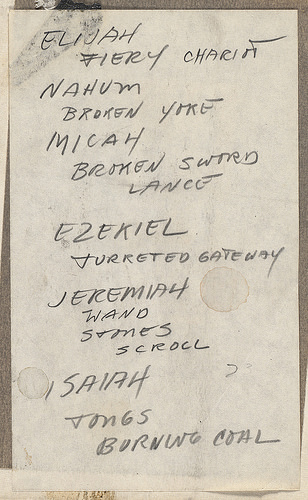 ELIJAH
FIERY CHARIOT
NAHUM
BROKEN YOKE
MICAH
BROKEN SWORD
LANCE
EZEKIEL
TURRETED GATEWAY
JEREMIAH
WAND
STONES
SCROLL
ISAIAH
TONGS
BURNING COAL